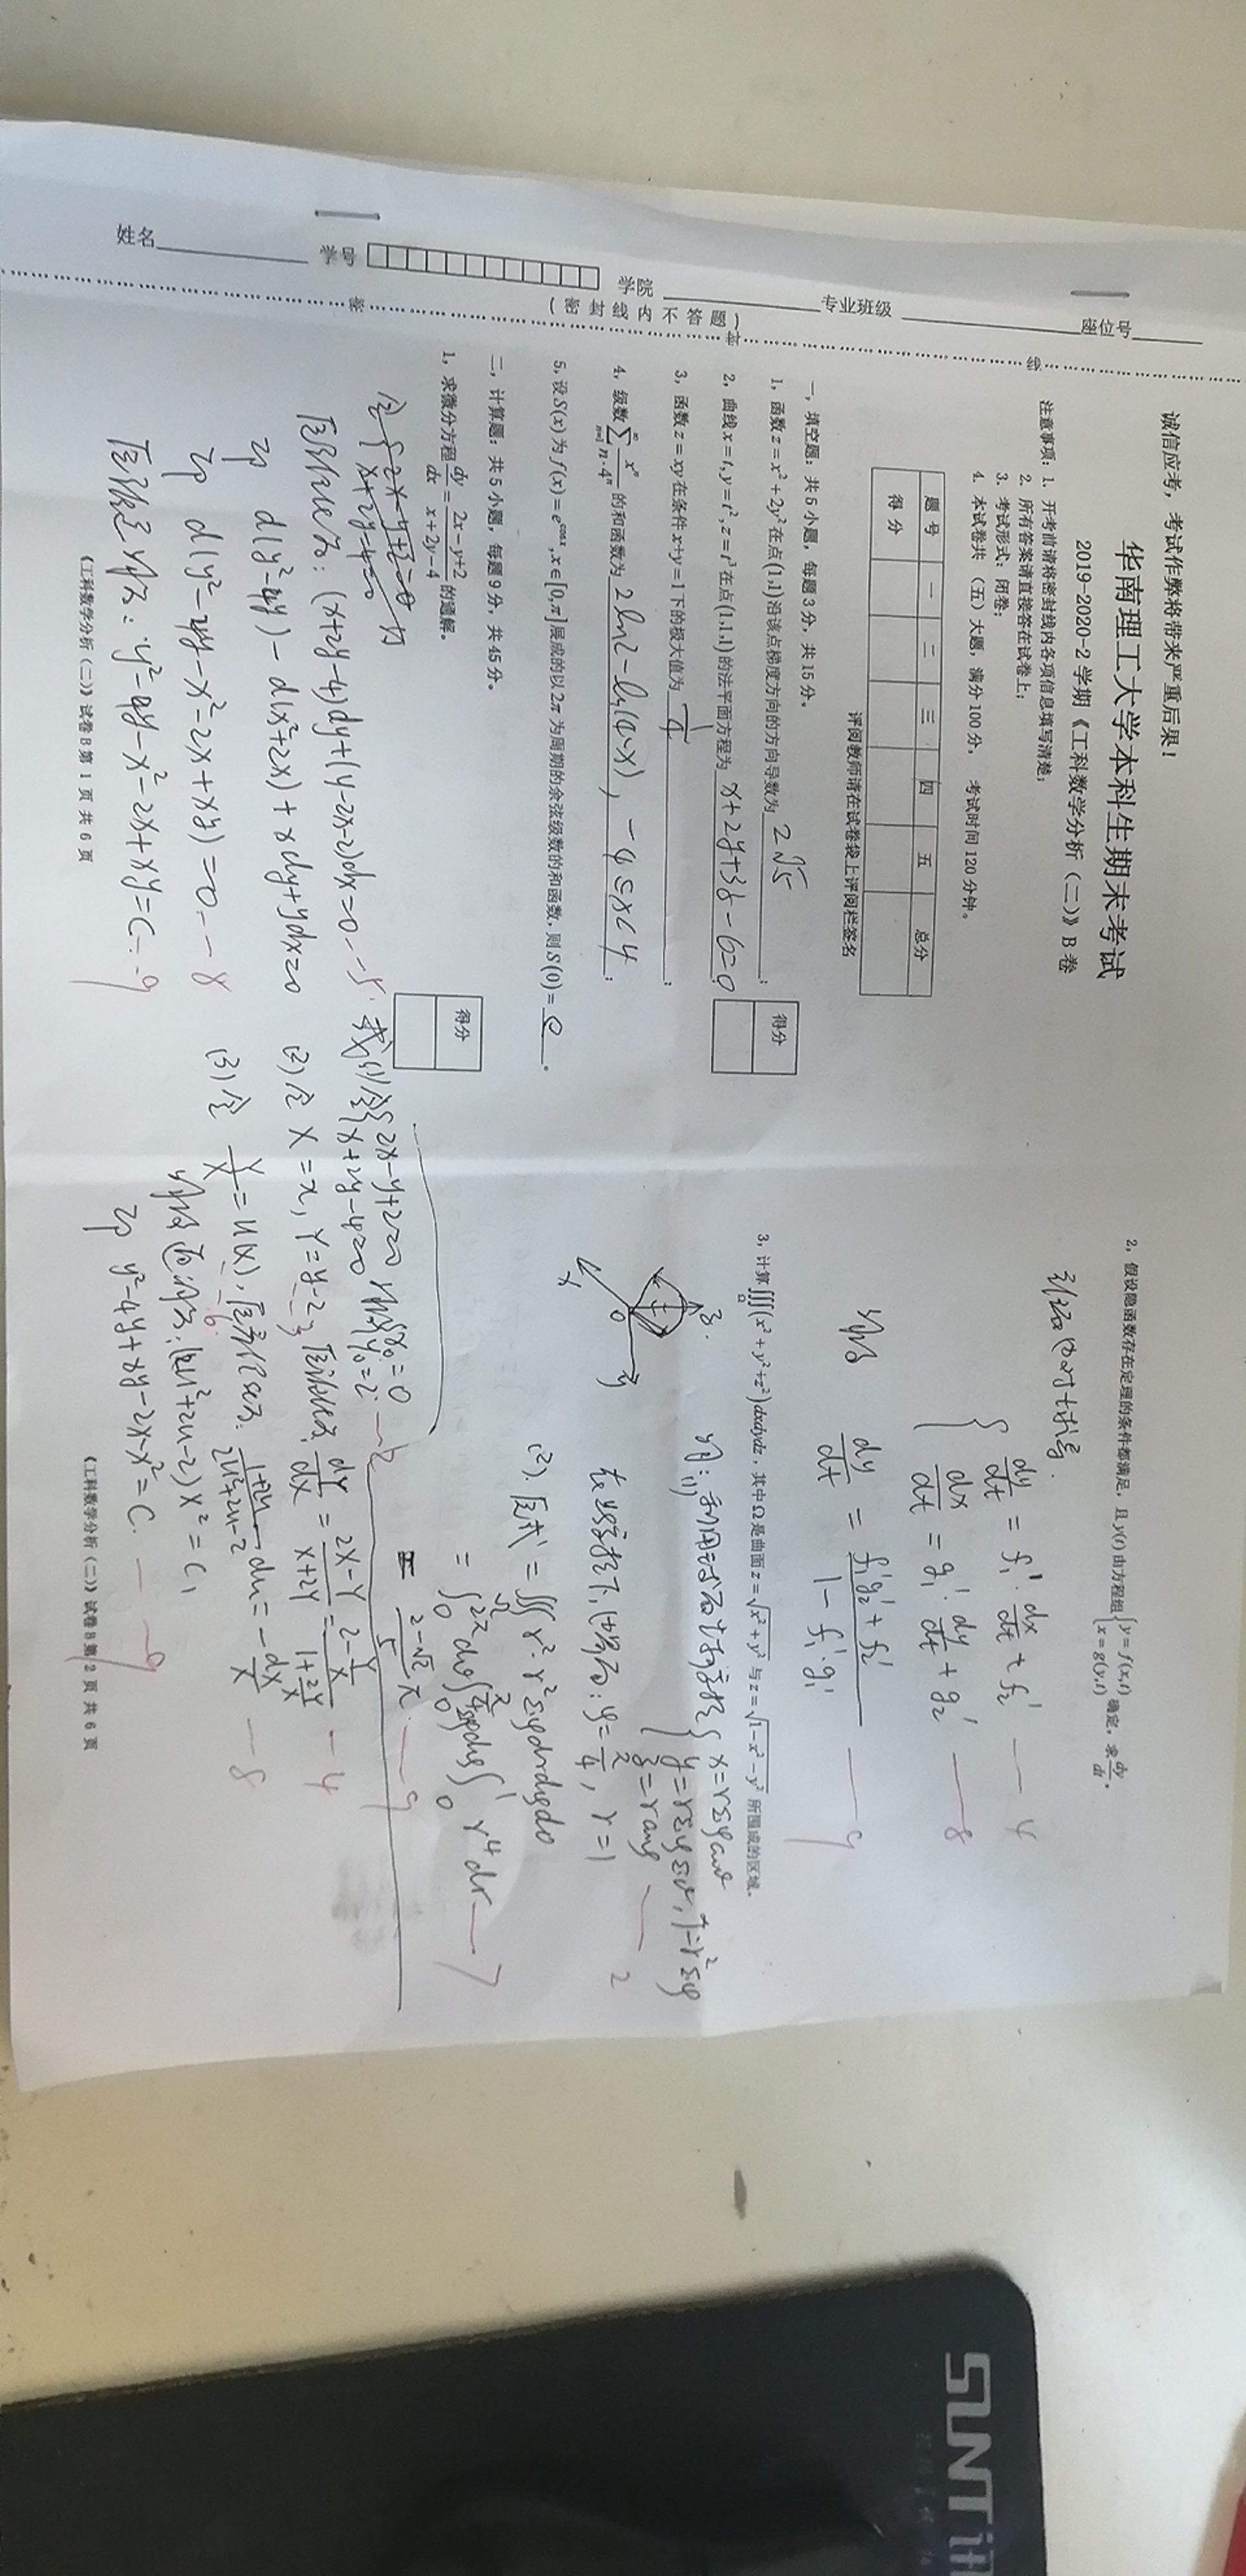 诚信应考，考试作弊将带来严重后果！
华南理工大学本科生期末考试
2019-2020-2学期《工科数学分析（二）》B卷
注意事项：1. 开考前请将密封线内各项信息填写清楚；
2. 所有答案请直接答在试卷上；
3. 考试形式：闭卷；
4. 本试卷共（五）大题，满分100分， 考试时间120分钟。
题号 一 二 三 四 五 总分
得分
评阅教师请在试卷袋上评阅栏签名
得分
一，填空题：共5小题，每题3分，共15分。
1，函数z=x²+2y²在点(1,1)沿该点梯度方向的方向导数为 2√5 ；
2，曲线x=t,y=t²,z=t³在点(1,1,1)的法平面方程为 x+2y+3z-6=0
3，函数z=xy在条件x+y=1下的极大值为 1/4 ；
4，级数∑_{n=1}^{∞} xⁿ/(n·4ⁿ) 的和函数为 2ln2-ln(4-x)，-4≤x<4 ；
5，设S(x)为f(x)=e^{cosx},x∈[0,π]展成的以2π为周期的余弦级数的和函数，则S(0)= e 。
得分
二，计算题：共5小题，每题9分，共45分。
1，求微分方程 dy/dx = (2x-y+2)/(x+2y-4) 的通解。
原方程化为：(x+2y-4)dy+(y-2x-2)dx=0 -5
即 d(y²-4y)-d(x²+2x)+xdy+ydx=0
即 d(y²-4y-x²-2x+xy)=0 -8
y²-4y-x²-2x+xy=C -9
或(1)令{2x-y+2=0 x+2y-4=0 x₀=0 y₀=2 -2
(2)令 X=x, Y=y-2, -3 原方程化为 dY/dX = (2X-Y)/(X+2Y) = (2-Y/X)/(1+2Y/X) -4
(3)令 Y/X=u(X), -6 原方程化为: (1+2u)/(2u²+2u-2) du = -dX/X -8
(u²+2u-2)X²=C₁
即 y²-4y+xy-2x-x²=C. -9
《工科数学分析（二）》试卷B第1页 共6页
2，假设隐函数存在定理的条件都满足，且y(t)由方程组{y=f(x,t) x=g(y,t) 确定，求dy/dt。
对t求导.
{dy/dt = f₁'·dx/dt + f₂' -4
dx/dt = g₁'·dy/dt + g₂' -8
dy/dt = (f₁'g₂'+f₂')/(1-f₁'·g₁') -9
3，计算∭_Ω(x²+y²+z²)dxdydz，其中Ω是曲面z=√(x²+y²)与z=√(1-x²-y²)所围成的区域。
z
O
y
x
(1)利用球面坐标变换{x=rsinφcosθ y=rsinφsinθ, J=r²sinφ z=rcosφ -2
在此变换下, φ=π/4, r=1
(2). 原式=∭_Ω r²·r²sinφdrdφdθ
=∫₀^{2π}dθ∫₀^{π/4}sinφdφ∫₀¹r⁴dr -7
= (2-√2)/5 π. -9
《工科数学分析（二）》试卷B第2页 共6页
姓名
学号
学院
专业班级
座位号
（密封线内不答题）
密
封
线
SUNT